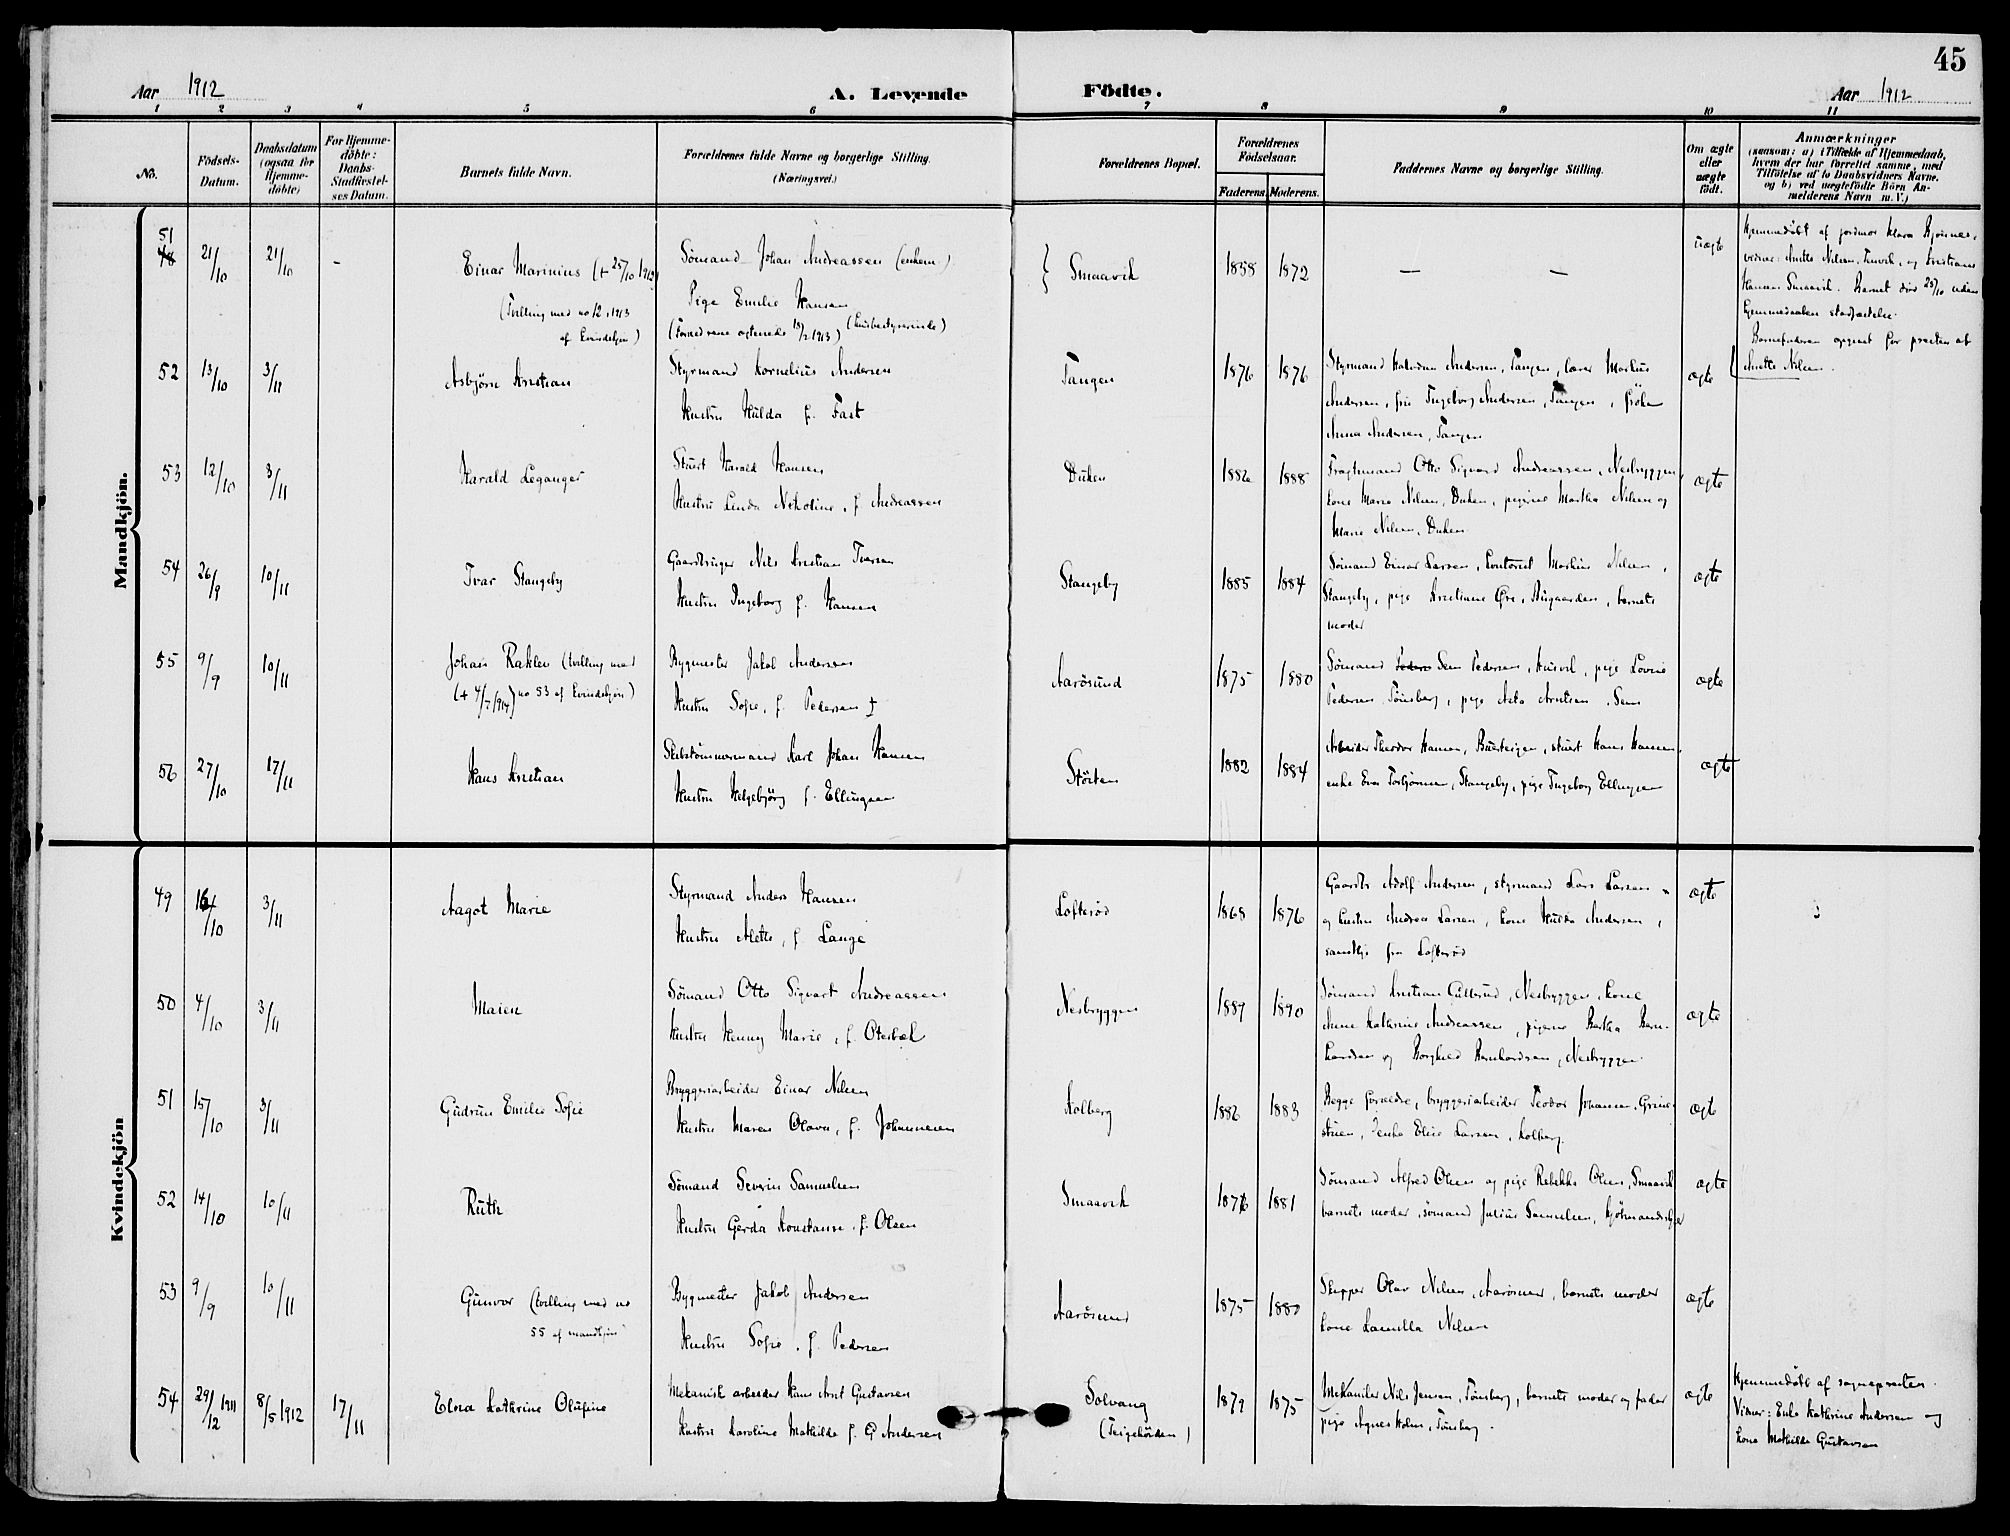 45
Aar 1912
A. Levende Födte.
Aar 1912
1 2 3 4 5 6 7 8 9 10 11
No.
Födsels-Datum.
Daabsdatum (ogsaa for Hjemme-döbte)
For Hjemme-döbte: Daabs-Stadfæstel-ses Datum.
Barnets fulde Navn.
Forældrenes fulde Navne og borgerlige Stilling.
(Næringsvei.)
Forældrenes Bopæl.
Forældrenes Födselsaar.
Faderens. Moderens.
Faddernes Navne og borgerlige Stilling.
Om ægte eller uægte födt.
Anmærkninger
(saasom: a) i Tilfælde af Hjemmedaab,
hvem der har forrettet samme, med
Tilföielse af to Daabsvidners Navne,
og b) ved uægtefödte Börn An-
melderens Navn m. V.)
Mandkjön.
51
48 21/10 21/10 – Einar Marinius (+ 25/10 1912)
(Tvilling med no 12, 1913
af kvindekjøn)
Sømand Johan Andreassen (enkem.)
Pige Emilie Hansen
(Forældrene ægteviede 13/2 1913) (Husbestyrerinde)
Smaavik 1858 1872 — — uægte
Hjemmedöbt af jordmor Klara
vidner: Anette Nilsen, og Kristiane
Hansen Smaavik. Barnet död 25/10 uden
hjemmedaabens stadfæstelse.
Barnefaderen opgivet for presten af
Anette Nilsen.
52 13/10 3/11 Asbjörn Kristian
Styrmand Kornelius Andersen
Hustru Hulda f. Fast
Tangen 1876 1876
Styrmand Andersen, Tangen, lærer Markus
Andersen, fru Ingeborg Andersen, Tangen, fröken
Anna Andersen, Tangen
ægte
53 12/10 3/11 Harald Leganger
Stuert Harald Hansen
Hustru Linda Nikoline, f. Andreassen
Duken 1882 1888
Fragtmand Otto Sigvard Andreassen, Nesbryggen,
kone Marie Nilsen, Duken, pigerne Martha Nilsen og
Marie Nilsen, Duken
ægte
54 26/9 10/11 Ivar Stangeby
Gaardbruger Nils Kristian Iversen
Hustru Ingeborg f. Hansen
Stangeby 1885 1884
Sömand Einar Larsen, kontorist Markus Nilsen,
Stangeby, pige Kristiane Öre, Bugaarden, barnets
moder
ægte
55 9/9 10/11 Johan Rakler (tvilling med
(+ 4/7 1914) no 53 af kvindekjön)
Bygmester Jakob Andersen
Hustru Sofie, f. Pedersen
Aarösund 1875 1880
Sömand Sem Pedersen, Husvik, pige Lovise
Pedersen, Tönsberg, pige Asta Kristian, Sem
ægte
56 27/10 17/11 Hans Kristian
Skibstömmermand Karl Johan Hansen
Hustru Helgebjörg f. Ellingsen
Störten 1882 1884
Arbeider Theodor Hansen, stuert Hans Hansen,
enke Eva Torbjörnsen, Stangeby, pige Ingeborg Ellingsen
ægte
Kvindekjön
49 16/10 3/11 Aagot Marie
Styrmand Anders Hansen
Hustru Alette, f. Lange
Lofteröd 1868 1876
Gaardbr Adolf Andersen, styrmand Lars Larsen
og hustru Andrea Larsen, kone Hulda Andersen,
samtlige fra Lofteröd
ægte
50 4/10 3/11 Maien
Sömand Otto Sigvart Andreassen
Hustru Henny Marie, f. Oterbæk
Nesbryggen 1889 1890
Sömand Kristian Gulbrud, Nesbryggen, kone
Anne Kathrine Andreassen, pigerne Bertha Bern-
hardsen og Borghild Bernhardsen, Nesbryggen.
ægte
51 15/10 3/11 Gudrun Emilie Sofie
Bryggeriarbeider Einar Nilsen
Hustru Maren Olava, f. Johannesen
Kolberg 1882 1883
Begge forældre, bryggeriarbeider Teodor Johansen, Grine-
stuen, Elise Larsen, Kolberg.
ægte
52 14/10 10/11 Ruth
Sömand Severin Samuelsen
Hustru Gerda Konstanse, f. Olsen
Smaavik 1876 1881
Sömand Alfred Olsen og pige Rebekka Olsen, Smaavik
barnets moder, sömand Julius Samuelsen,
ægte
53 9/9 10/11 Gunvor (tvilling med no
55 af mandkjön
Bygmester Jakob Andersen
Hustru Sofie, f. Pedersen
Aarösund 1875 1880
Skipper Olav Nilsen, Aarösund, barnets moder
kone Lamella Nilsen
ægte
54 29/12 1911 8/5 1912 17/11 Elna Kathrine Olufine
Mekanisk arbeider Hans Arnt Gustavsen
Hustru Karoline Mathilde f. G Andersen
Solvang
(Teigehöiden)
1879 1875
Mekaniker Nils Jensen, Tönsberg, barnets moder og fader
pige Agnes Holm, Tönsberg.
ægte
Hjemmedöbt af sognepresten.
Vidner: Enke Kathrine Andersen og
kone Mathilde Gustavsen